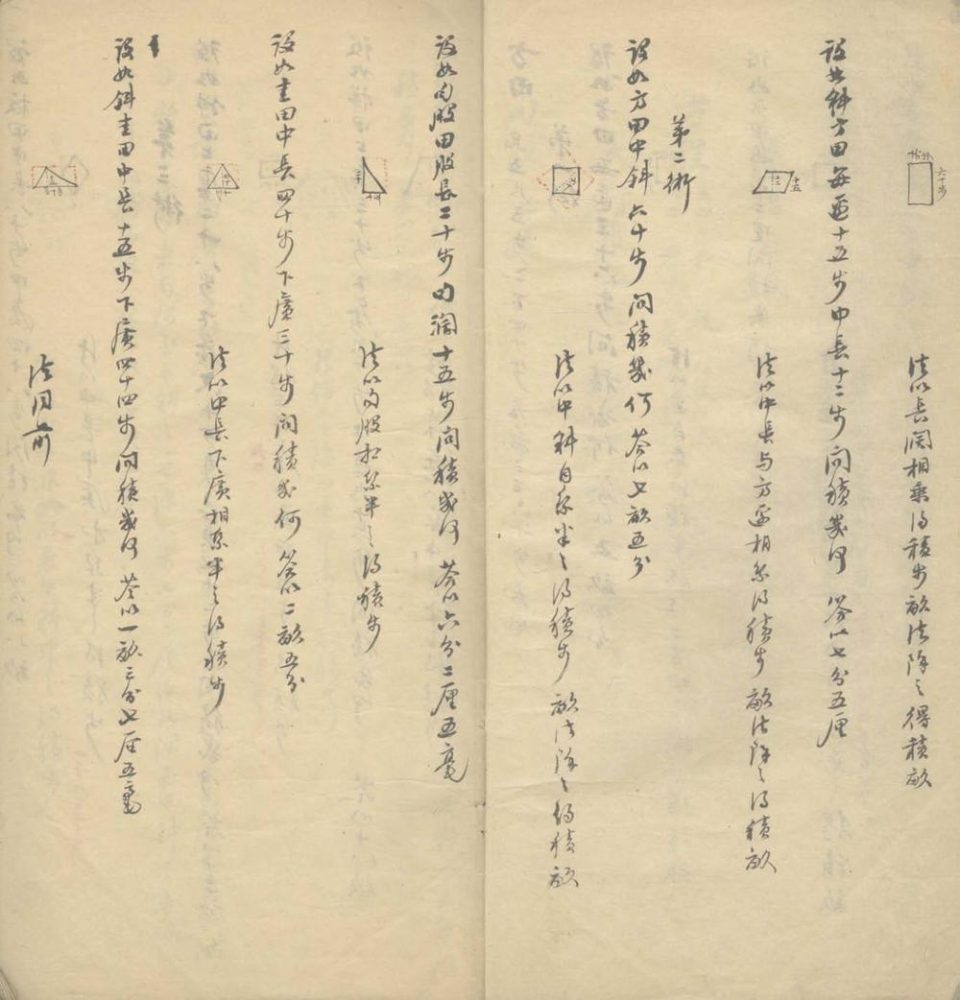 法以長闊相乘得積步畝法除之得積畝
設如斜方田每面十五步中長十二步問積幾何 答曰七分五厘
法以中長与方面相乘得積步 畝法除之得積畝
第二術
設如方田中斜六十步問積幾何 答曰七畝五分
法以中斜自乘半之得積步 畝法除之得積畝
設如勾股田股長二十步勾闊十五步問積幾何 答曰六分二厘五毫
法以勾股相乘半之得積步
設如圭田中長四十步下廣三十步問積幾何 答曰二畝五分
法以中長下廣相乘半之得積步
設如斜圭田中長十五步下廣四十四步問積幾何 答曰一畝三分七厘五毫
法同前